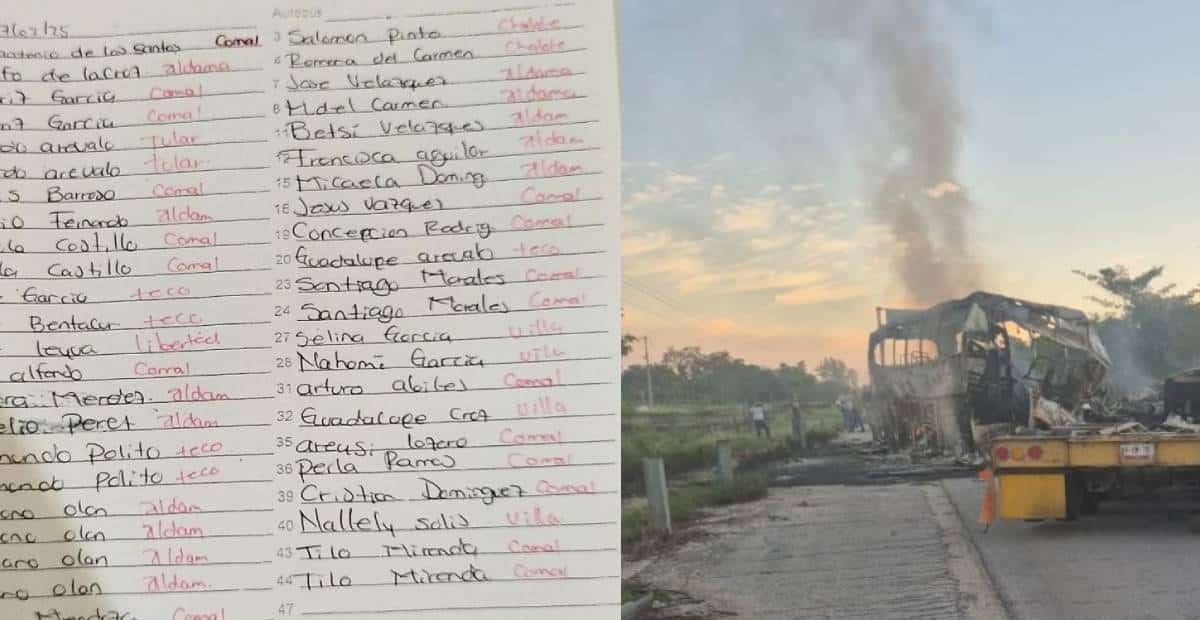 7/02/25
Autobus
antonio de los santos Comal
fo de lacroz aldama
Garcia Comal
Garcia Comal
arevalo Tular
arevalo tular
s Barroso Comal
io Fernando aldam
Castillo Comal
Castillo Comal
Garcia teco
Bentacur teco
leyva libertad
alfondo Comal
Mendes. aldam
elio Peret aldam
mundo Polito teco
Polito teco
olan aldam
olan aldam
olan aldam
olan aldam.
Comal
3 Salomon Pinto Chalele
6 Romera del Carmen Chalele
7 Jose Velazquez aldama
8 Mdel Carmen aldama
11 Betsi Velazques aldam
12 Francisca aguilar aldam
15 Micaela Doming aldam
16 Jesus Vazques Comal
19 Concepcion Rodrig Comal
20 Guadalupe arevalo teco
23 Santiago Morales Comal
24 Santiago Morales Comal
27 Selina Garcia Villa
28 Nahomi Garcia Villa
31 arturo abiles Comal
32 Guadalupe Croz Villa
35 areusi lozero Comal
36 Perla Parres Comal
39 Cristian Dominguez Comal
40 Nallely solis Villa
43 Tilo Mirenda Comal
44 Tilo Mirenda Comal
47